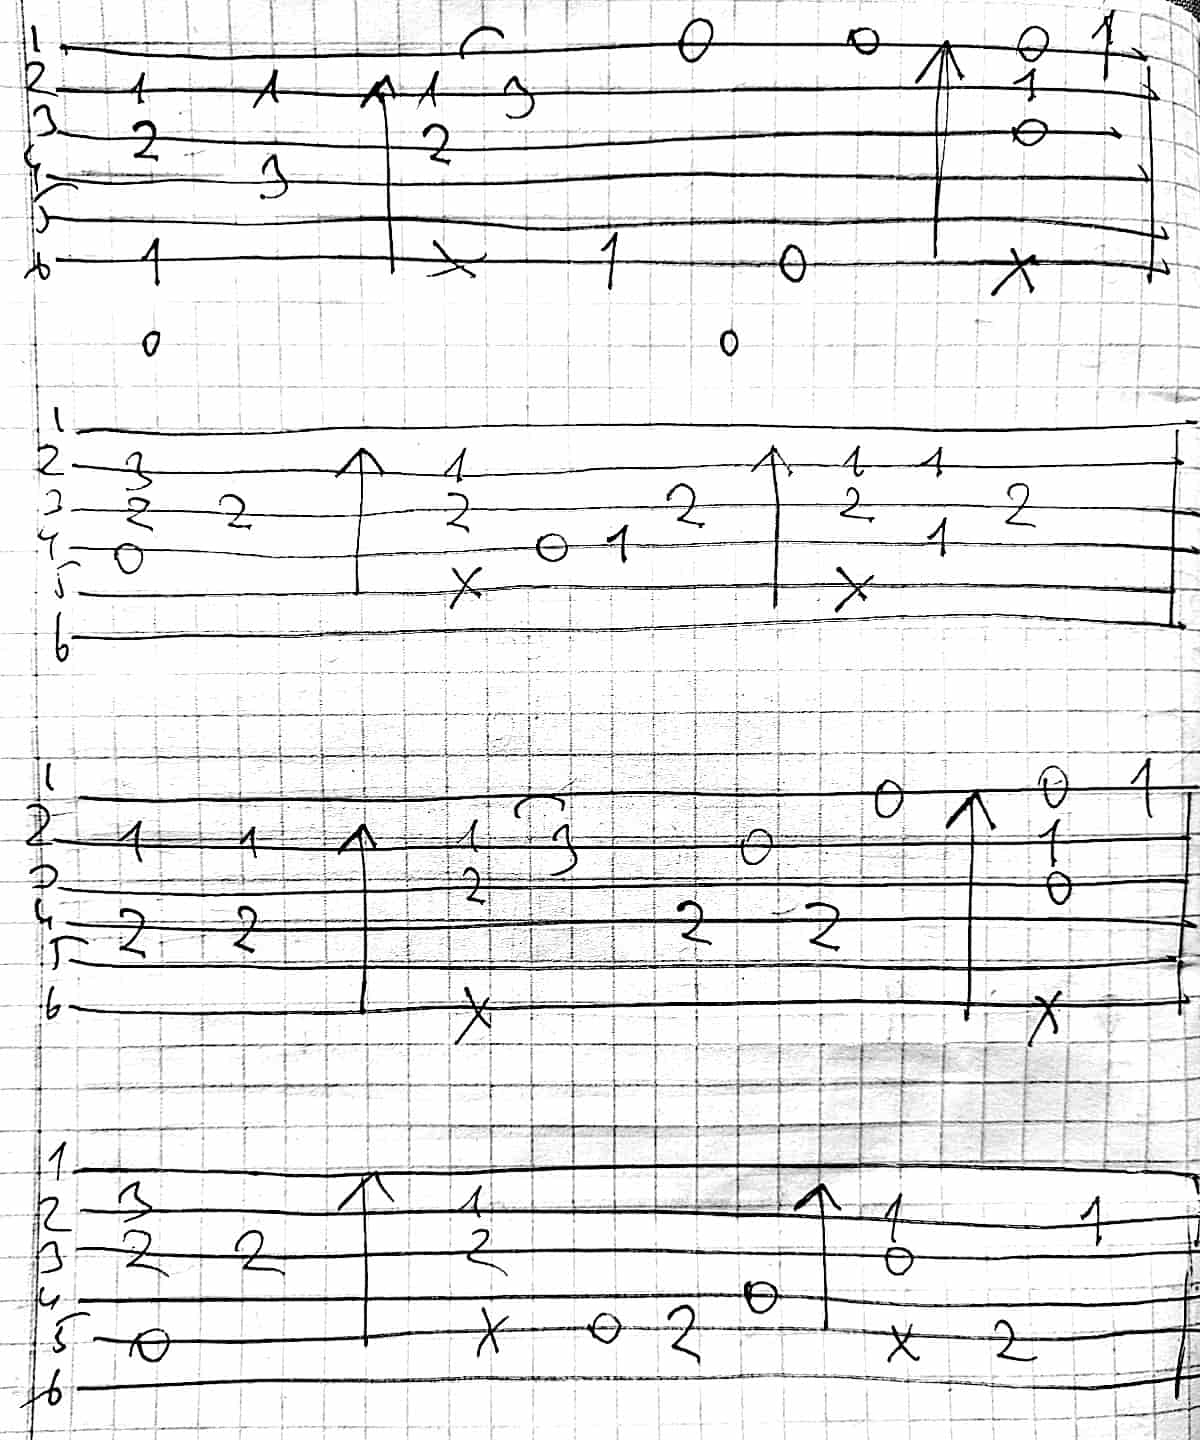 1 0 0 0 1
2 1 1 1 3 1
3 2 2 0
4 3
5
6 1 X 1 0 X
0 0
1
2 3 1 1 1
3 2 2 2 2 2 2
4 0 0 1 1
5 X X
6
1 0 0 1
2 1 1 1 3 0 1
3 2 0
4 2 2 2 2
5
6 X X
1
2 3 1 1 1
3 2 2 2 0
4 0
5 0 X 0 2 X 2
6